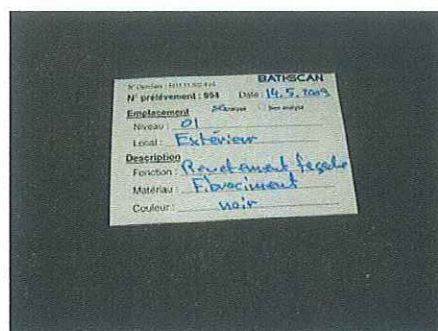 BATISCAN
N° prélèvement : 994 Date : 14.5.2009
Emplacement Analysé Non analysé
Niveau : 01
Local : Extérieur
Description
Fonction : Revêtement façade
Matériau : Fibrociment
Couleur : noir